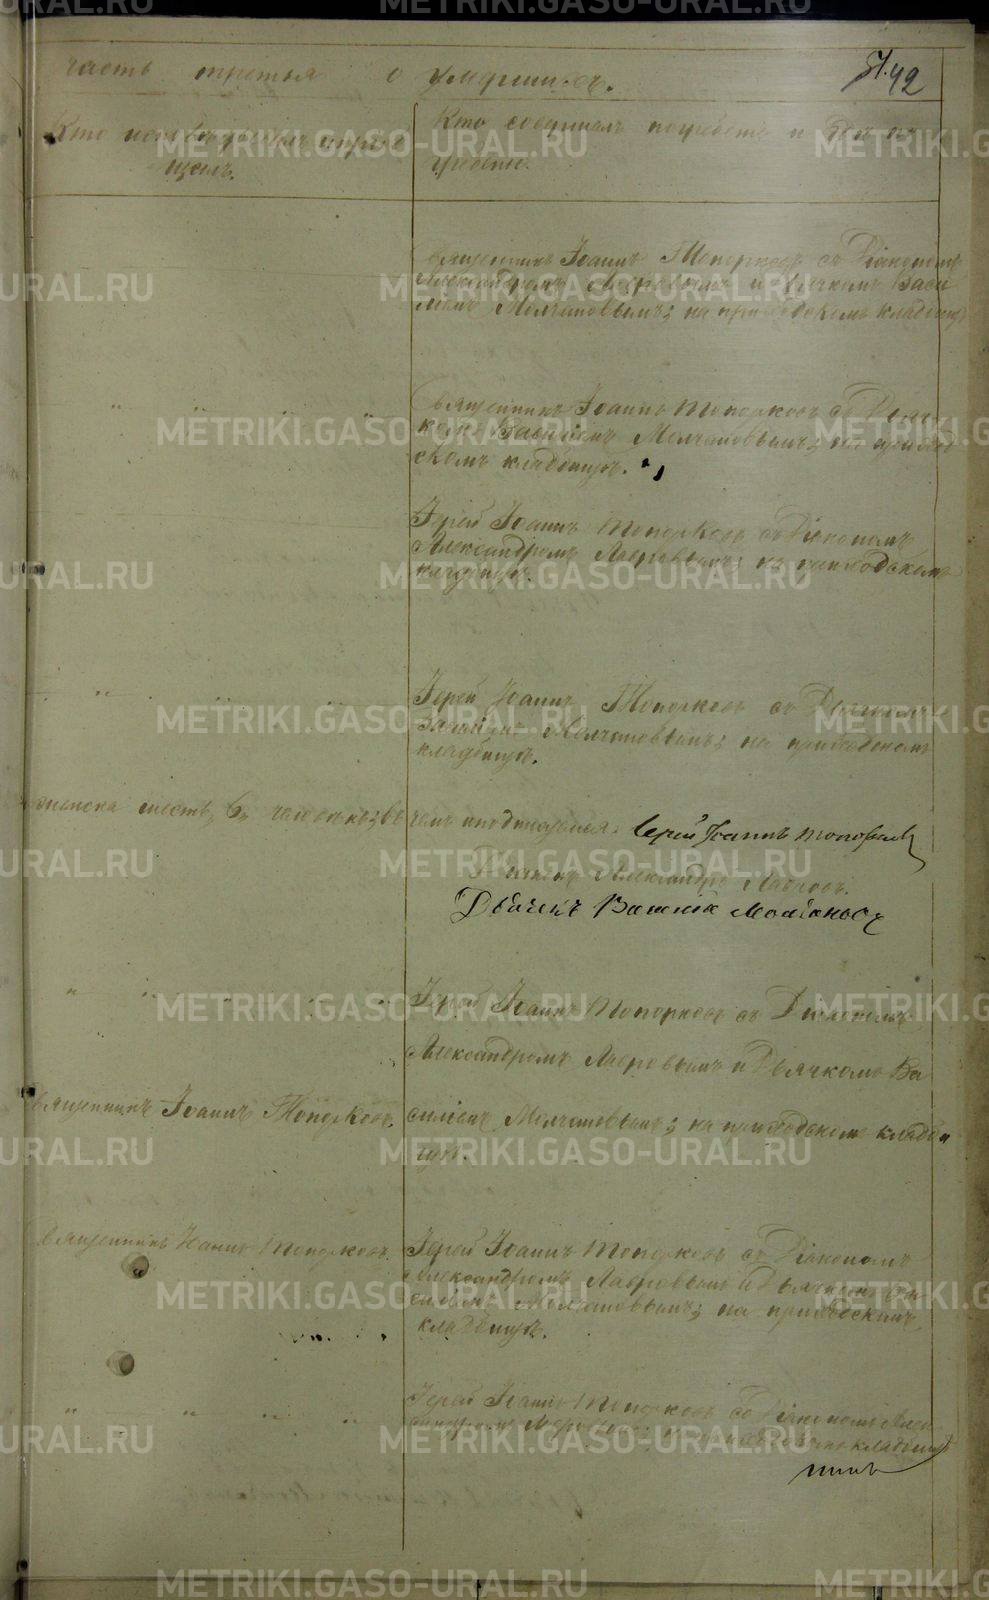 METRIKI.GASO-URAL.RU
часть третья о умерших.
51. 42
Кто исповедывалъ и приоб
щалъ.
Кто совершалъ погребенiе и где по
гребены.
Священникъ Iоаннъ Топорковъ съ Дiакономъ
Александромъ Лавровымъ и Дьячкомъ Васи
лiемъ Молчановымъ; на приходскомъ кладбищѣ
" " " "
Священникъ Iоаннъ Топорковъ съ Дьяч
комъ Василiемъ Молчановымъ; на приход
скомъ кладбищѣ.
Iерей Iоаннъ Топорковъ съ Дiакономъ
Александромъ Лавровымъ; на приходскомъ
кладбищѣ.
" " "
Iерей Iоаннъ Топорковъ съ Дьячкомъ
Василiемъ Молчановымъ; на приходскомъ
кладбищѣ.
женска шесть, 6, человѣкъ; въ
чемъ и подписуемся. Iерей Iоаннъ Топорковъ
Дiаконъ Александръ Лавровъ.
Дьячекъ Василiй Молчановъ
" " " " "
Iерей Iоаннъ Топорковъ съ Дiакономъ
Александромъ Лавровымъ и Дьячкомъ Ва
Священникъ Iоаннъ Топорковъ.
силiемъ Молчановымъ; на приходскомъ кладби
щѣ.
Священникъ Iоаннъ Топорковъ
Iерей Iоаннъ Топорковъ съ Дiакономъ
Александромъ Лавровымъ и Дьячкомъ Ва
силiемъ Молчановымъ; на приходскомъ
кладбищѣ.
" " " "
Iерей Iоаннъ Топорковъ съ Дiакономъ Алек
сандромъ Лавровымъ; на приходскомъ кладбищѣ